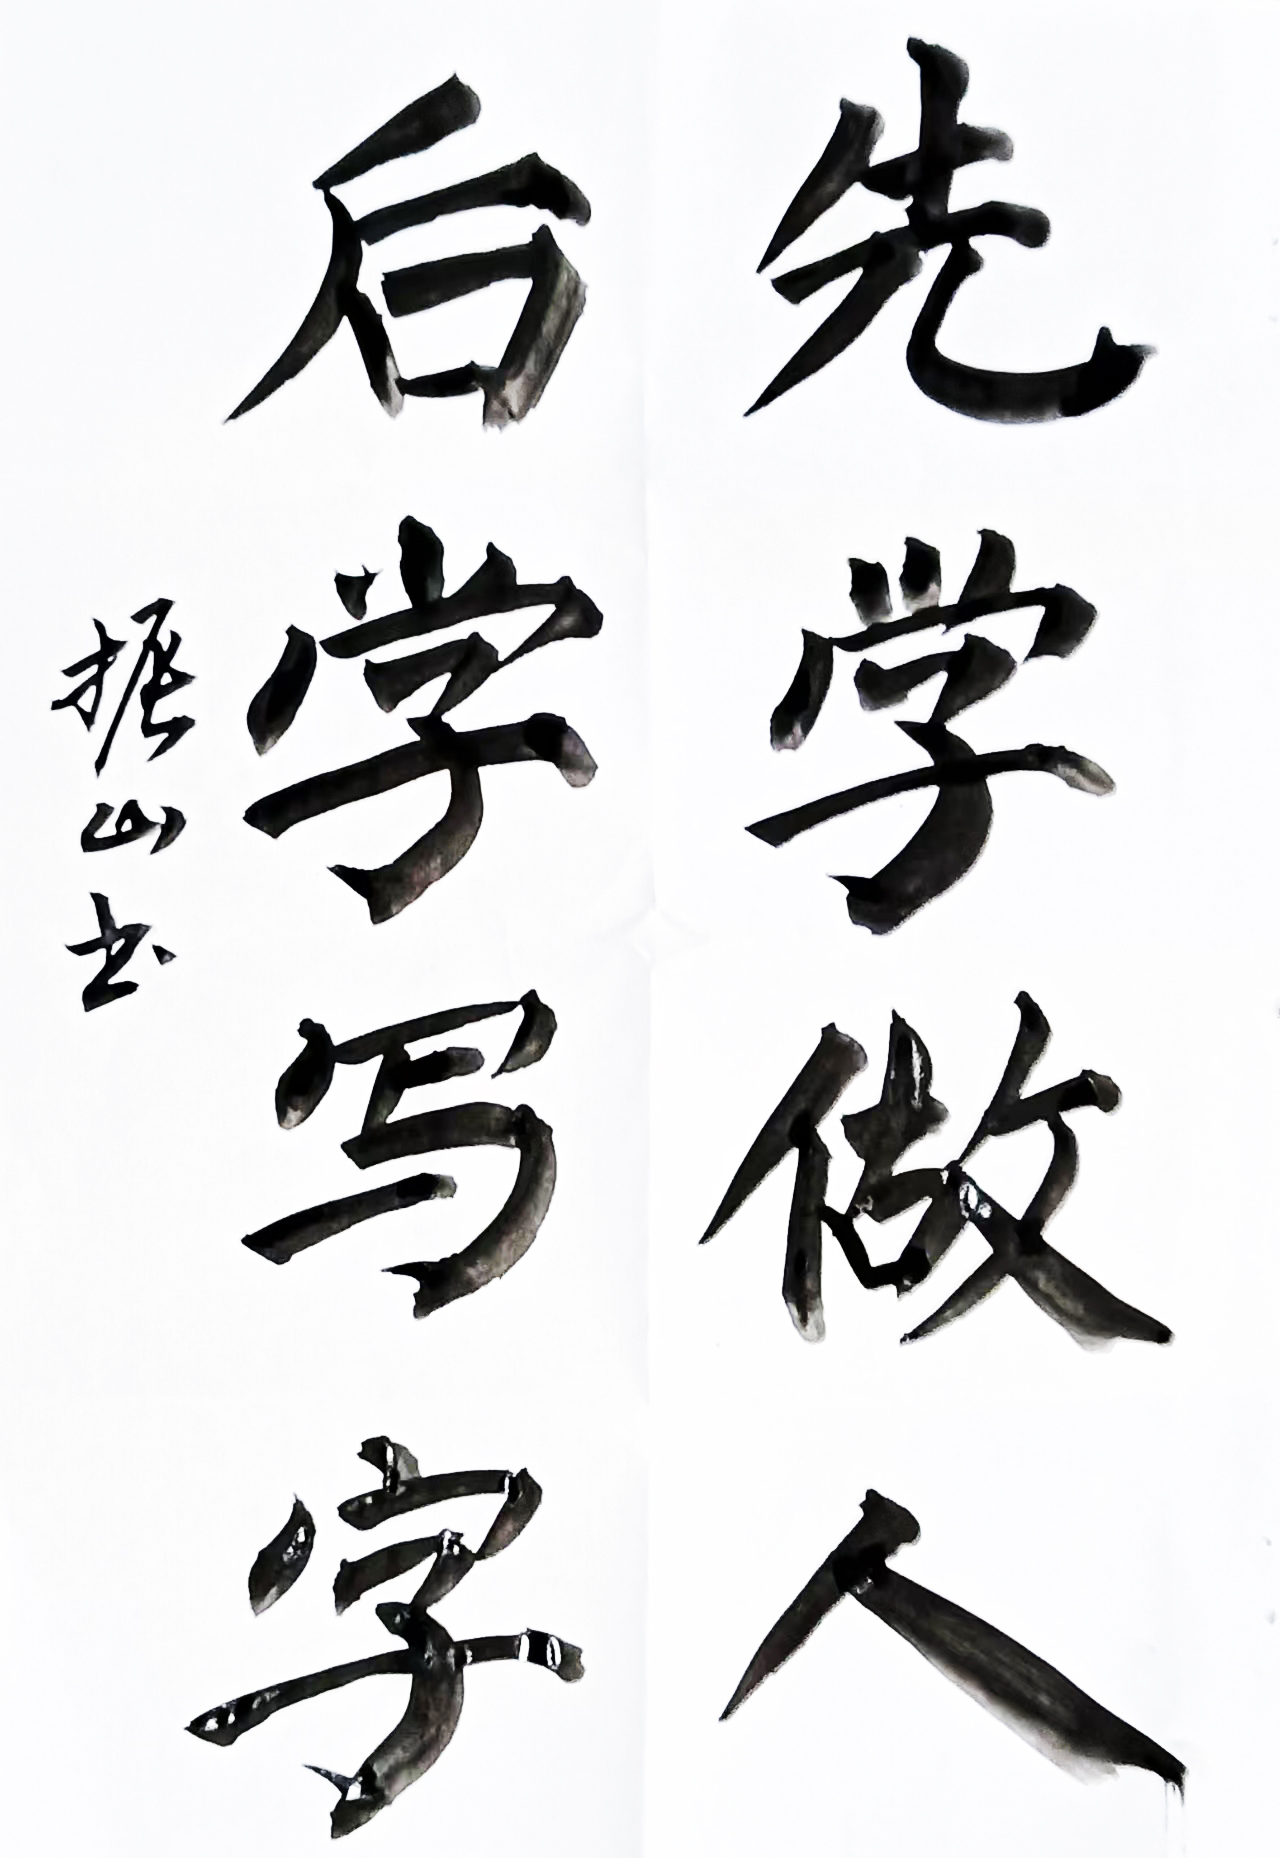 先学做人
后学写字
振山书